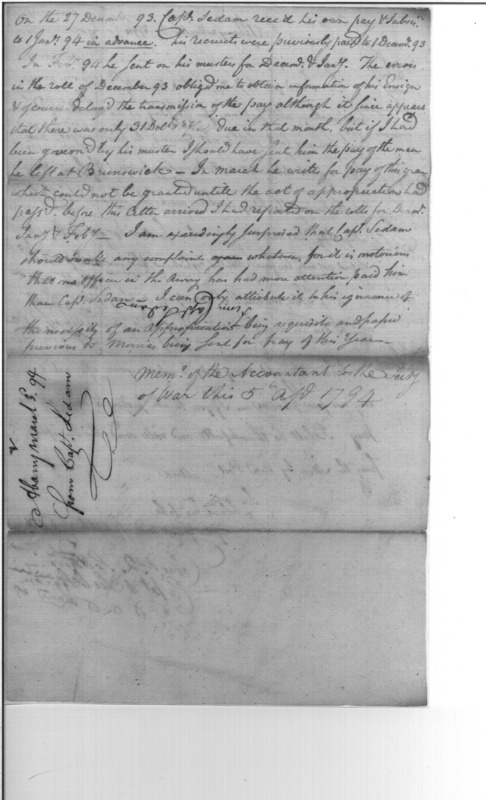 On the 27 Decem. 93. Capt. Sedam reced his own pay & Subsis.
to 1 Jany. 94 in advance. his recruits were previously paid to 1 Decemr. 93
In Feby. 94 he sent on his musters for Decemr. & Jany. The errors
in the roll of December 93 obliged me to obtain information of his Ensign
& of course delay'd the transmission of the pay although it since appears
that there was only 31 Doll. due in that month, but if I had
been govern'd by his muster I should have sent him the pay of the men
he left at Brunswick — In march he writes for pay of this year
which could not be granted until the act of appropriation had
pass'd. before this letter arrived I had reported on the rolls for Decemr.
Jany. & Feby. — I am exceedingly surprised that Capt. Sedam
should make any complaint upon whatever, for it is notorious
that no officer in the Army has had more attention paid him
than Capt. Sedam — I can only attribute it to his ignorance of
the necessity of an appropriation being requisite and passed
previous to Monies being sent for pay of this Year —
Memo. of the Accountant to the Secy
of War this 5th Apl. 1794
Albany March 5. 94
from Capt. Sedam